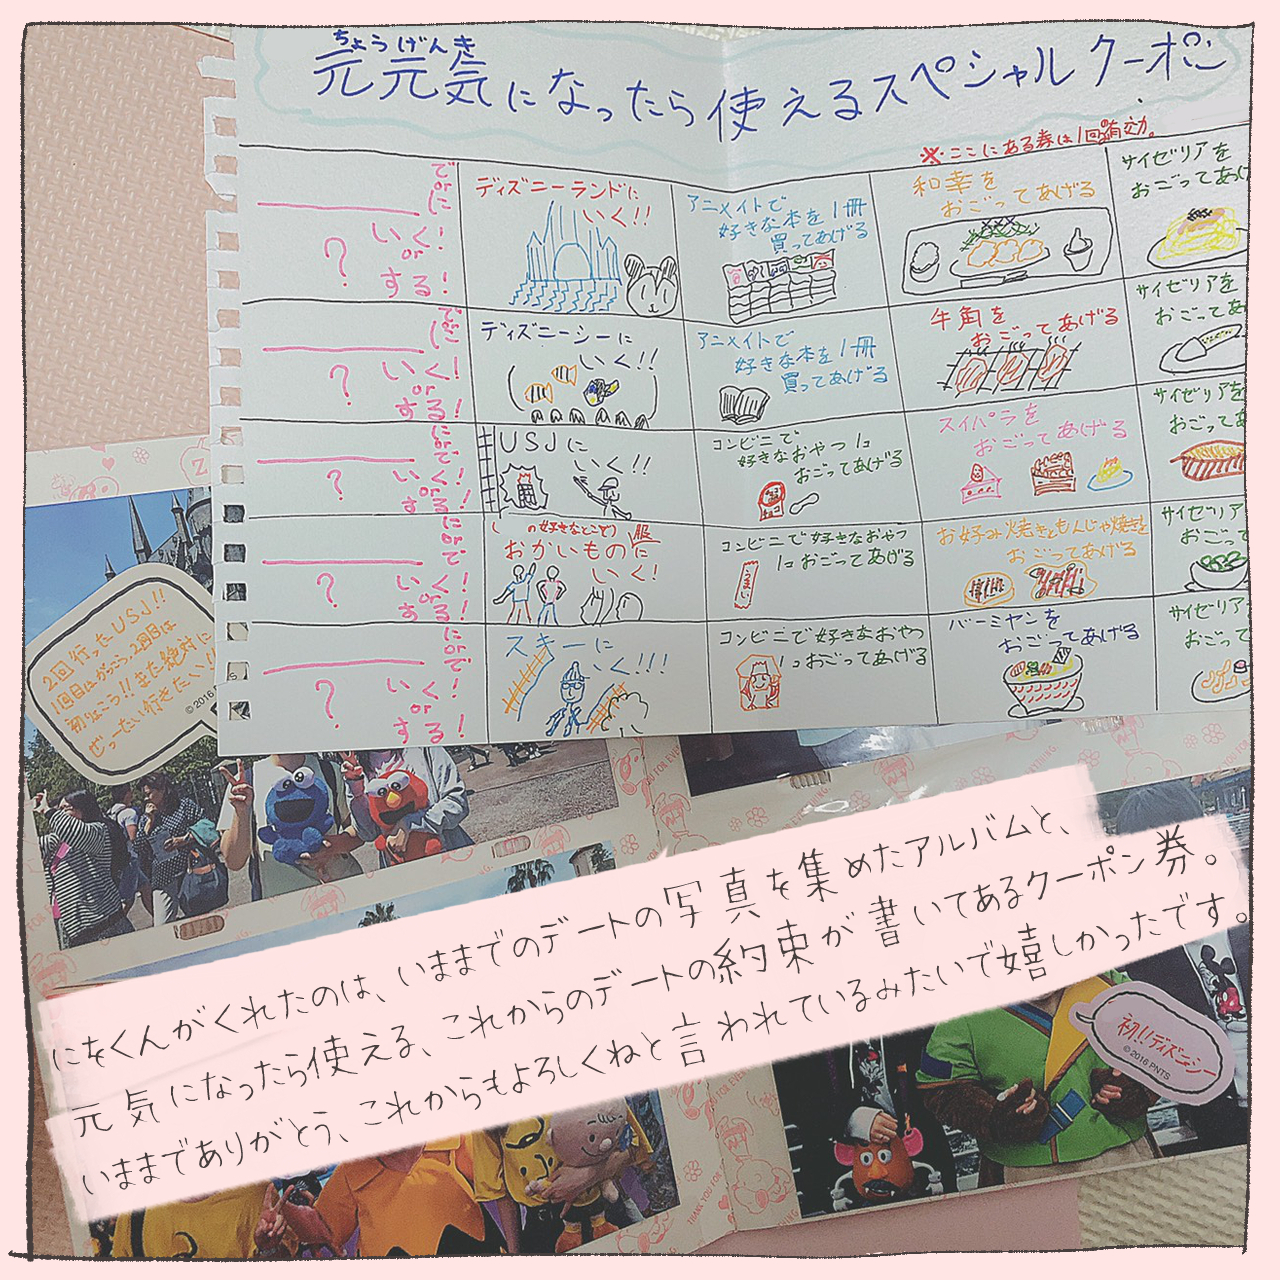 ちょうげんき
元元気になったら使えるスペシャルクーポン
※ここにある券は1回有効。
でorに
いく!
or
する!
?
ディズニーランドに
いく!!
アニメイトで
好きな本を1冊
買ってあげる
和幸を
おごってあげる
サイゼリアを
おごってあげ
でorに
いく!
or
する!
?
ディズニーシーに
いく!!
アニメイトで
好きな本を1冊
買ってあげる
牛角を
おごってあげる
サイゼリアを
おごってあげ
にorで
いく!
or
する!
?
USJに
いく!!
コンビニで
好きなおやつ1コ
おごってあげる
スイパラを
おごってあげる
サイゼリアを
おごってあげ
にorで
いく!
or
する!
?
の好きなとこで)服
おかいものに
いく!
コンビニで好きなおやつ
1コおごってあげる
うまい
お好み焼きともんじゃ焼きを
おごってあげる
サイゼリア
おごって
にorで
いく!
or
する!
?
スキーに
いく!!!
コンビニで好きなおやつ
1コおごってあげる
バーミヤンを
おごってあげる
サイゼリア
おごって
2回行ったUSJ!!
1回目はがっつり、2回目は
© 2016
初!!ディズニーシー
© 2016 PNTS
にをくんがくれたのは、いままでのデートの写真を集めたアルバムと、
元気になったら使える、これからのデートの約束が書いてあるクーポン券。
いままでありがとう、これからもよろしくねと言われているみたいで嬉しかったです。